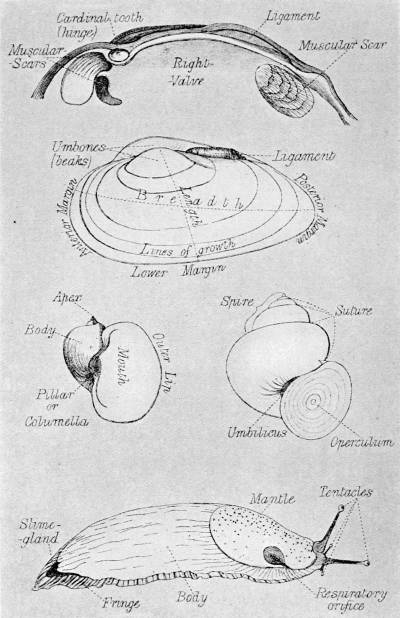 Cardinal tooth
(hinge)
Ligament
Muscular
-Scars
Right-
Valve
Muscular Scar
Umbones
(beaks)
Ligament
Breadth
Length
Anterior Margin
Posterior Margin
Lines of growth
Lower Margin
Apex
Body
Mouth
Outer Lip
Pillar
or
Columella
Spire
Suture
Umbilicus
Operculum
Mantle
Tentacles
Slime-
gland
Fringe
Body
Respiratory
orifice